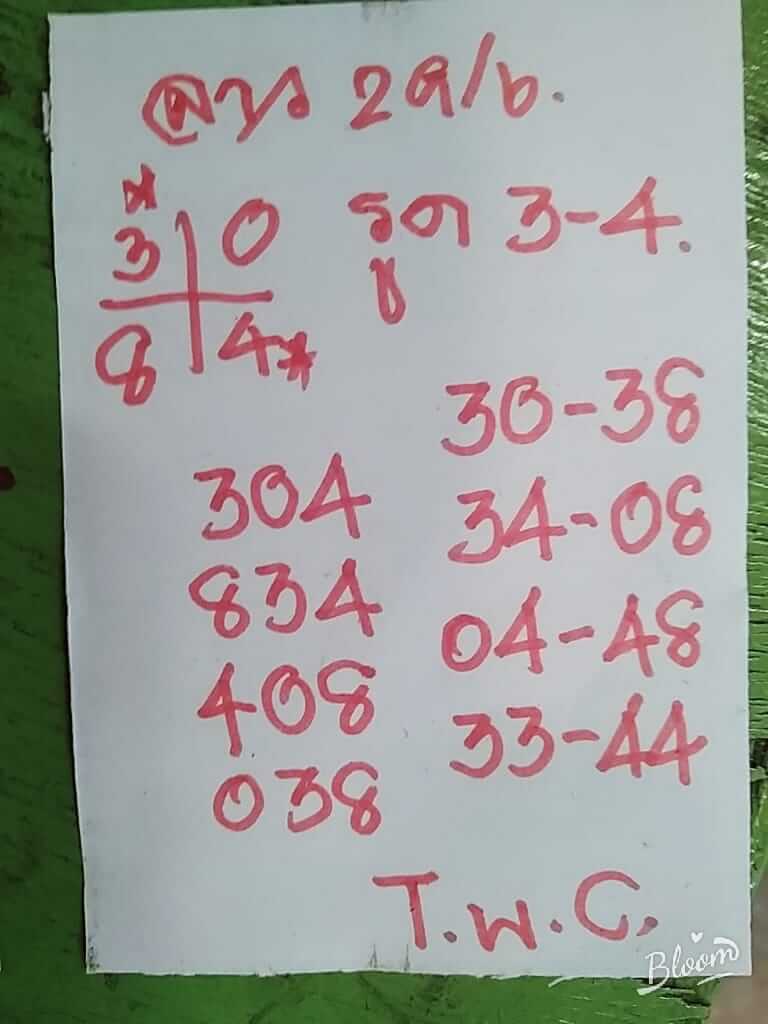 ลาว 29/6.
*
3 0 รูด 3-4.
8 4*
30-38
304 34-08
834 04-48
408 33-44
038
T.w.C.
Bloom